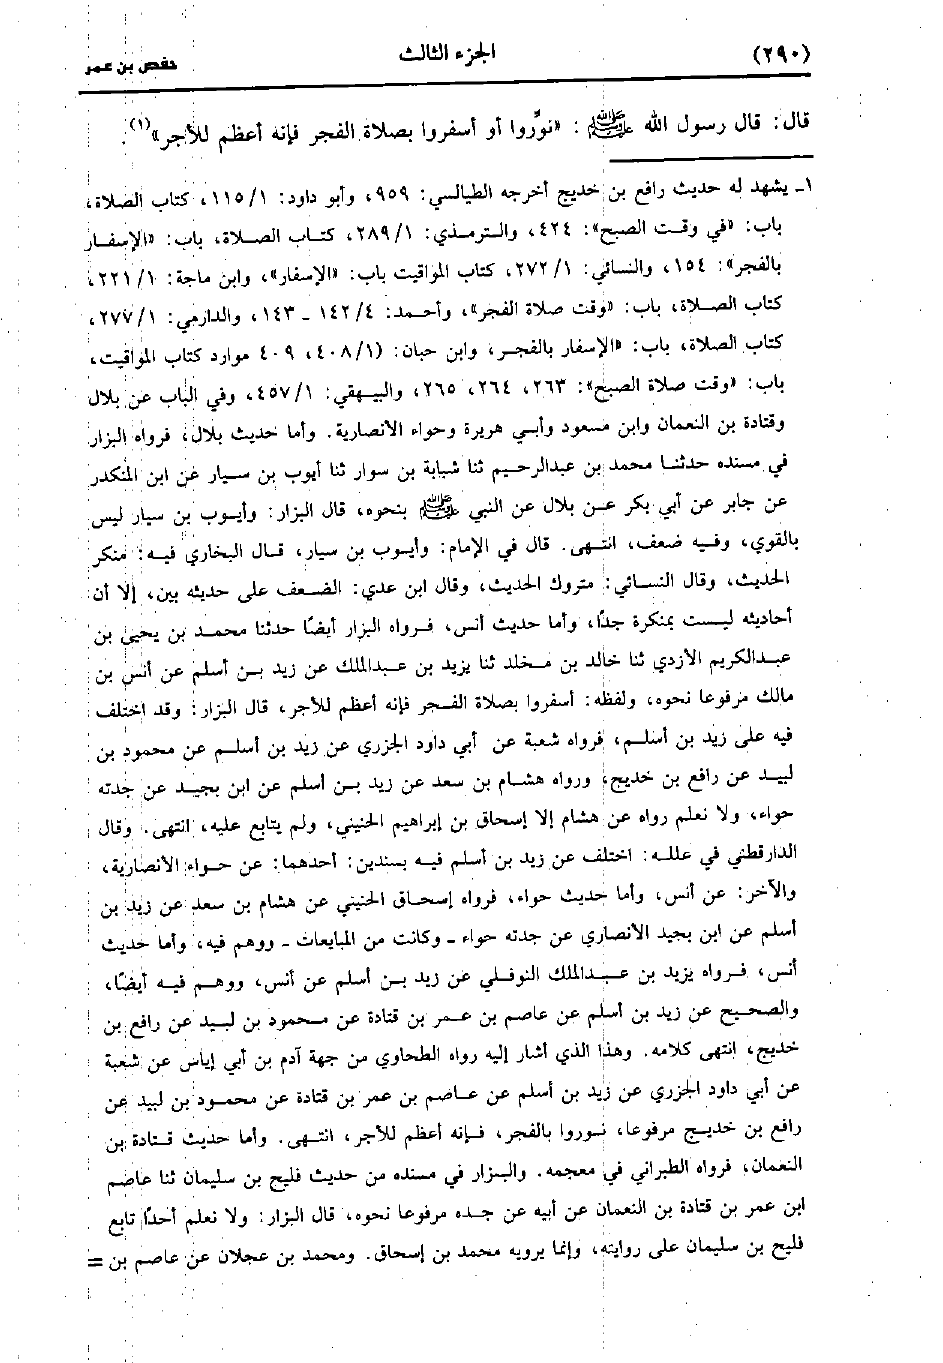 (٢٩٠) الجزء الثالث حفص بن عمر
قال: قال رسول الله ﷺ: «نوِّروا أو أسفروا بصلاة الفجر فإنه أعظم للأجر»(١).
١ـ يشهد له حديث رافع بن خديج أخرجه الطيالسي: ٩٥٩، وأبو داود: ١١٥/١، كتاب الصلاة،
باب: «في وقت الصبح»: ٤٢٤، والترمذي: ٢٨٩/١، كتاب الصلاة، باب: «الإسفار
بالفجر»: ١٥٤، والنسائي: ٢٧٢/١، كتاب المواقيت باب: «الإسفار»، وابن ماجة: ٢٢١/١،
كتاب الصلاة، باب: «وقت صلاة الفجر»، وأحمد: ١٤٢/٤ ـ ١٤٣، والدارمي: ٢٧٧/١،
كتاب الصلاة، باب: «الإسفار بالفجر، وابن حبان: (٤٠٨/١، ٤٠٩ موارد كتاب المواقيت،
باب: «وقت صلاة الصبح»: ٢٦٣، ٢٦٤، ٢٦٥، والبيهقي: ٤٥٧/١، وفي الباب عن بلال
وقتادة بن النعمان وابن مسعود وأبي هريرة وحواء الأنصارية. وأما حديث بلال، فرواه البزار
في مسنده حدثنا محمد بن عبدالرحيم ثنا شبابة بن سوار ثنا أيوب بن سيار عن ابن المنكدر
عن جابر عن أبي بكر عن بلال عن النبي ﷺ بنحوه، قال البزار: وأيوب بن سيار ليس
بالقوي، وفيه ضعف، انتهى. قال في الإمام: وأيوب بن سيار، قال البخاري فيه: منكر
الحديث، وقال النسائي: متروك الحديث، وقال ابن عدي: الضعف على حديثه بين، إلا أن
أحاديثه ليست بمنكرة جدًا، وأما حديث أنس، فرواه البزار أيضًا حدثنا محمد بن يحيى بن
عبدالكريم الأزدي ثنا خالد بن مخلد ثنا يزيد بن عبدالملك عن زيد بن أسلم عن أنس بن
مالك مرفوعا نحوه، ولفظه: أسفروا بصلاة الفجر فإنه أعظم للأجر، قال البزار: وقد اختلف
فيه على زيد بن أسلم، فرواه شعبة عن أبي داود الجزري عن زيد بن أسلم عن محمود بن
لبيد عن رافع بن خديج، ورواه هشام بن سعد عن زيد بن أسلم عن ابن بجيد عن جدته
حواء، ولا نعلم رواه عن هشام إلا إسحاق بن إبراهيم الحنيني، ولم يتابع عليه، انتهى. وقال
الدارقطني في علله: اختلف عن زيد بن أسلم فيه بسندين: أحدهما: عن حواء الأنصارية،
والآخر: عن أنس، وأما حديث حواء، فرواه إسحاق الحنيني عن هشام بن سعد عن زيد بن
أسلم عن ابن بجيد الأنصاري عن جدته حواء ـ وكانت من المبايعات ـ ووهم فيه، وأما حديث
أنس، فرواه يزيد بن عبدالملك النوفلي عن زيد بن أسلم عن أنس، ووهم فيه أيضًا،
والصحيح عن زيد بن أسلم عن عاصم بن عمر بن قتادة عن محمود بن لبيد عن رافع بن
خديج، انتهى كلامه. وهذا الذي أشار إليه رواه الطحاوي من جهة آدم بن أبي إياس عن شعبة
عن أبي داود الجزري عن زيد بن أسلم عن عاصم بن عمر بن قتادة عن محمود بن لبيد عن
رافع بن خديج مرفوعا، نوروا بالفجر، فإنه أعظم للأجر، انتهى. وأما حديث قتادة بن
النعمان، فرواه الطبراني في معجمه. والبزار في مسنده من حديث فليح بن سليمان ثنا عاصم
ابن عمر بن قتادة بن النعمان عن أبيه عن جده مرفوعا نحوه، قال البزار: ولا نعلم أحدًا تابع
فليح بن سليمان على روايته، وإنما يرويه محمد بن إسحاق. ومحمد بن عجلان عن عاصم بن =